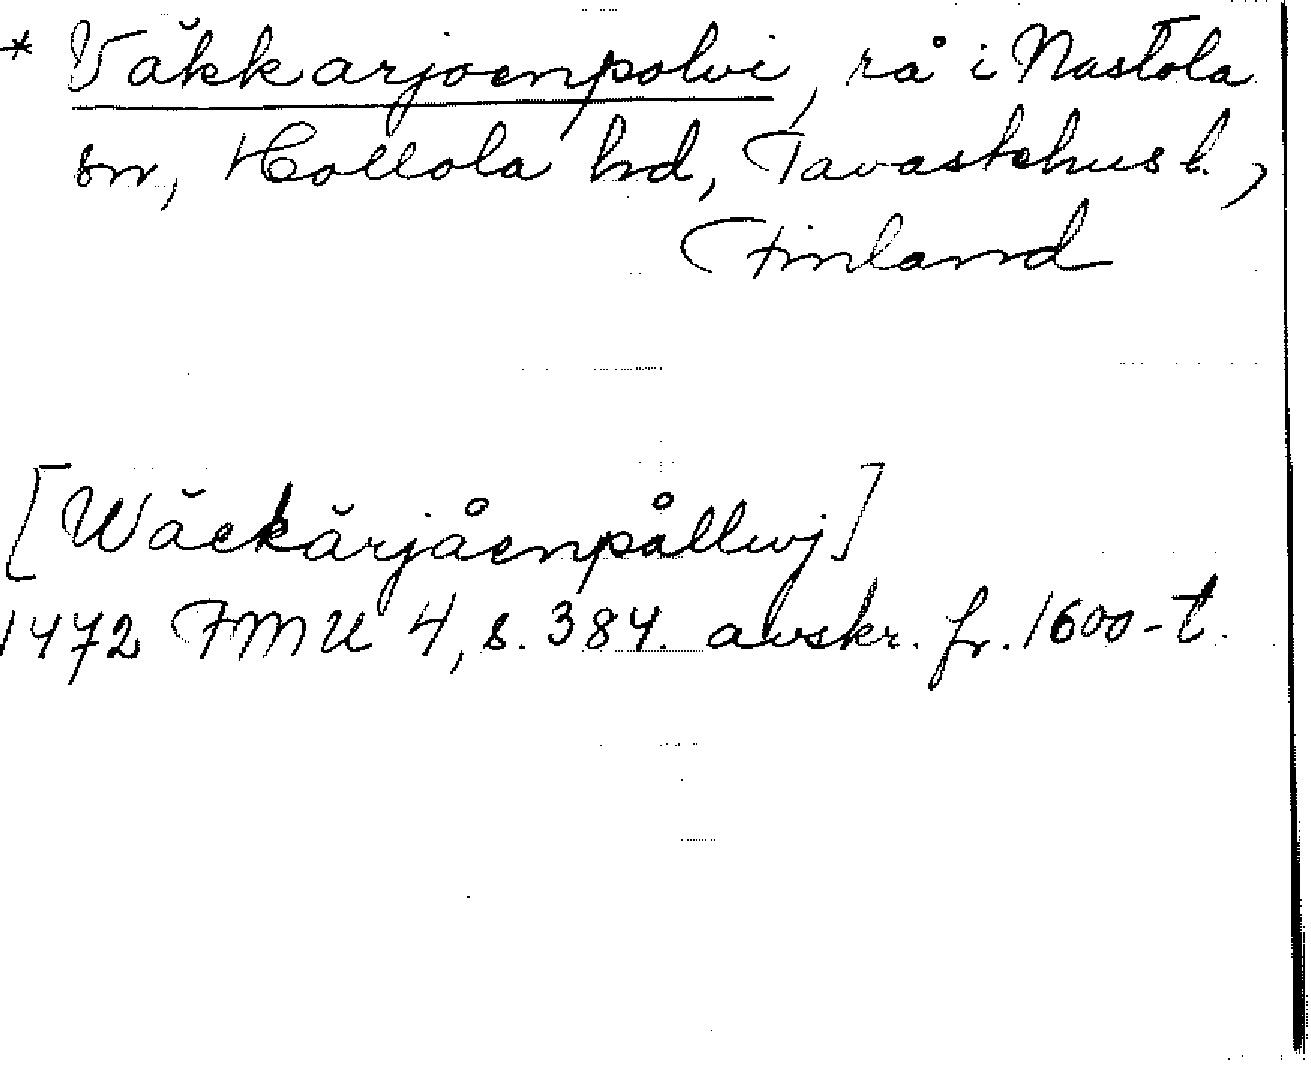 * Väkkarjoenpolvi, rå i Nastola
sn, Hollola hd, Tavastehus l.,
Finland
[Wäckärjåenpållwj]
1472 FMU 4, s. 384. avskr. fr. 1600-t.